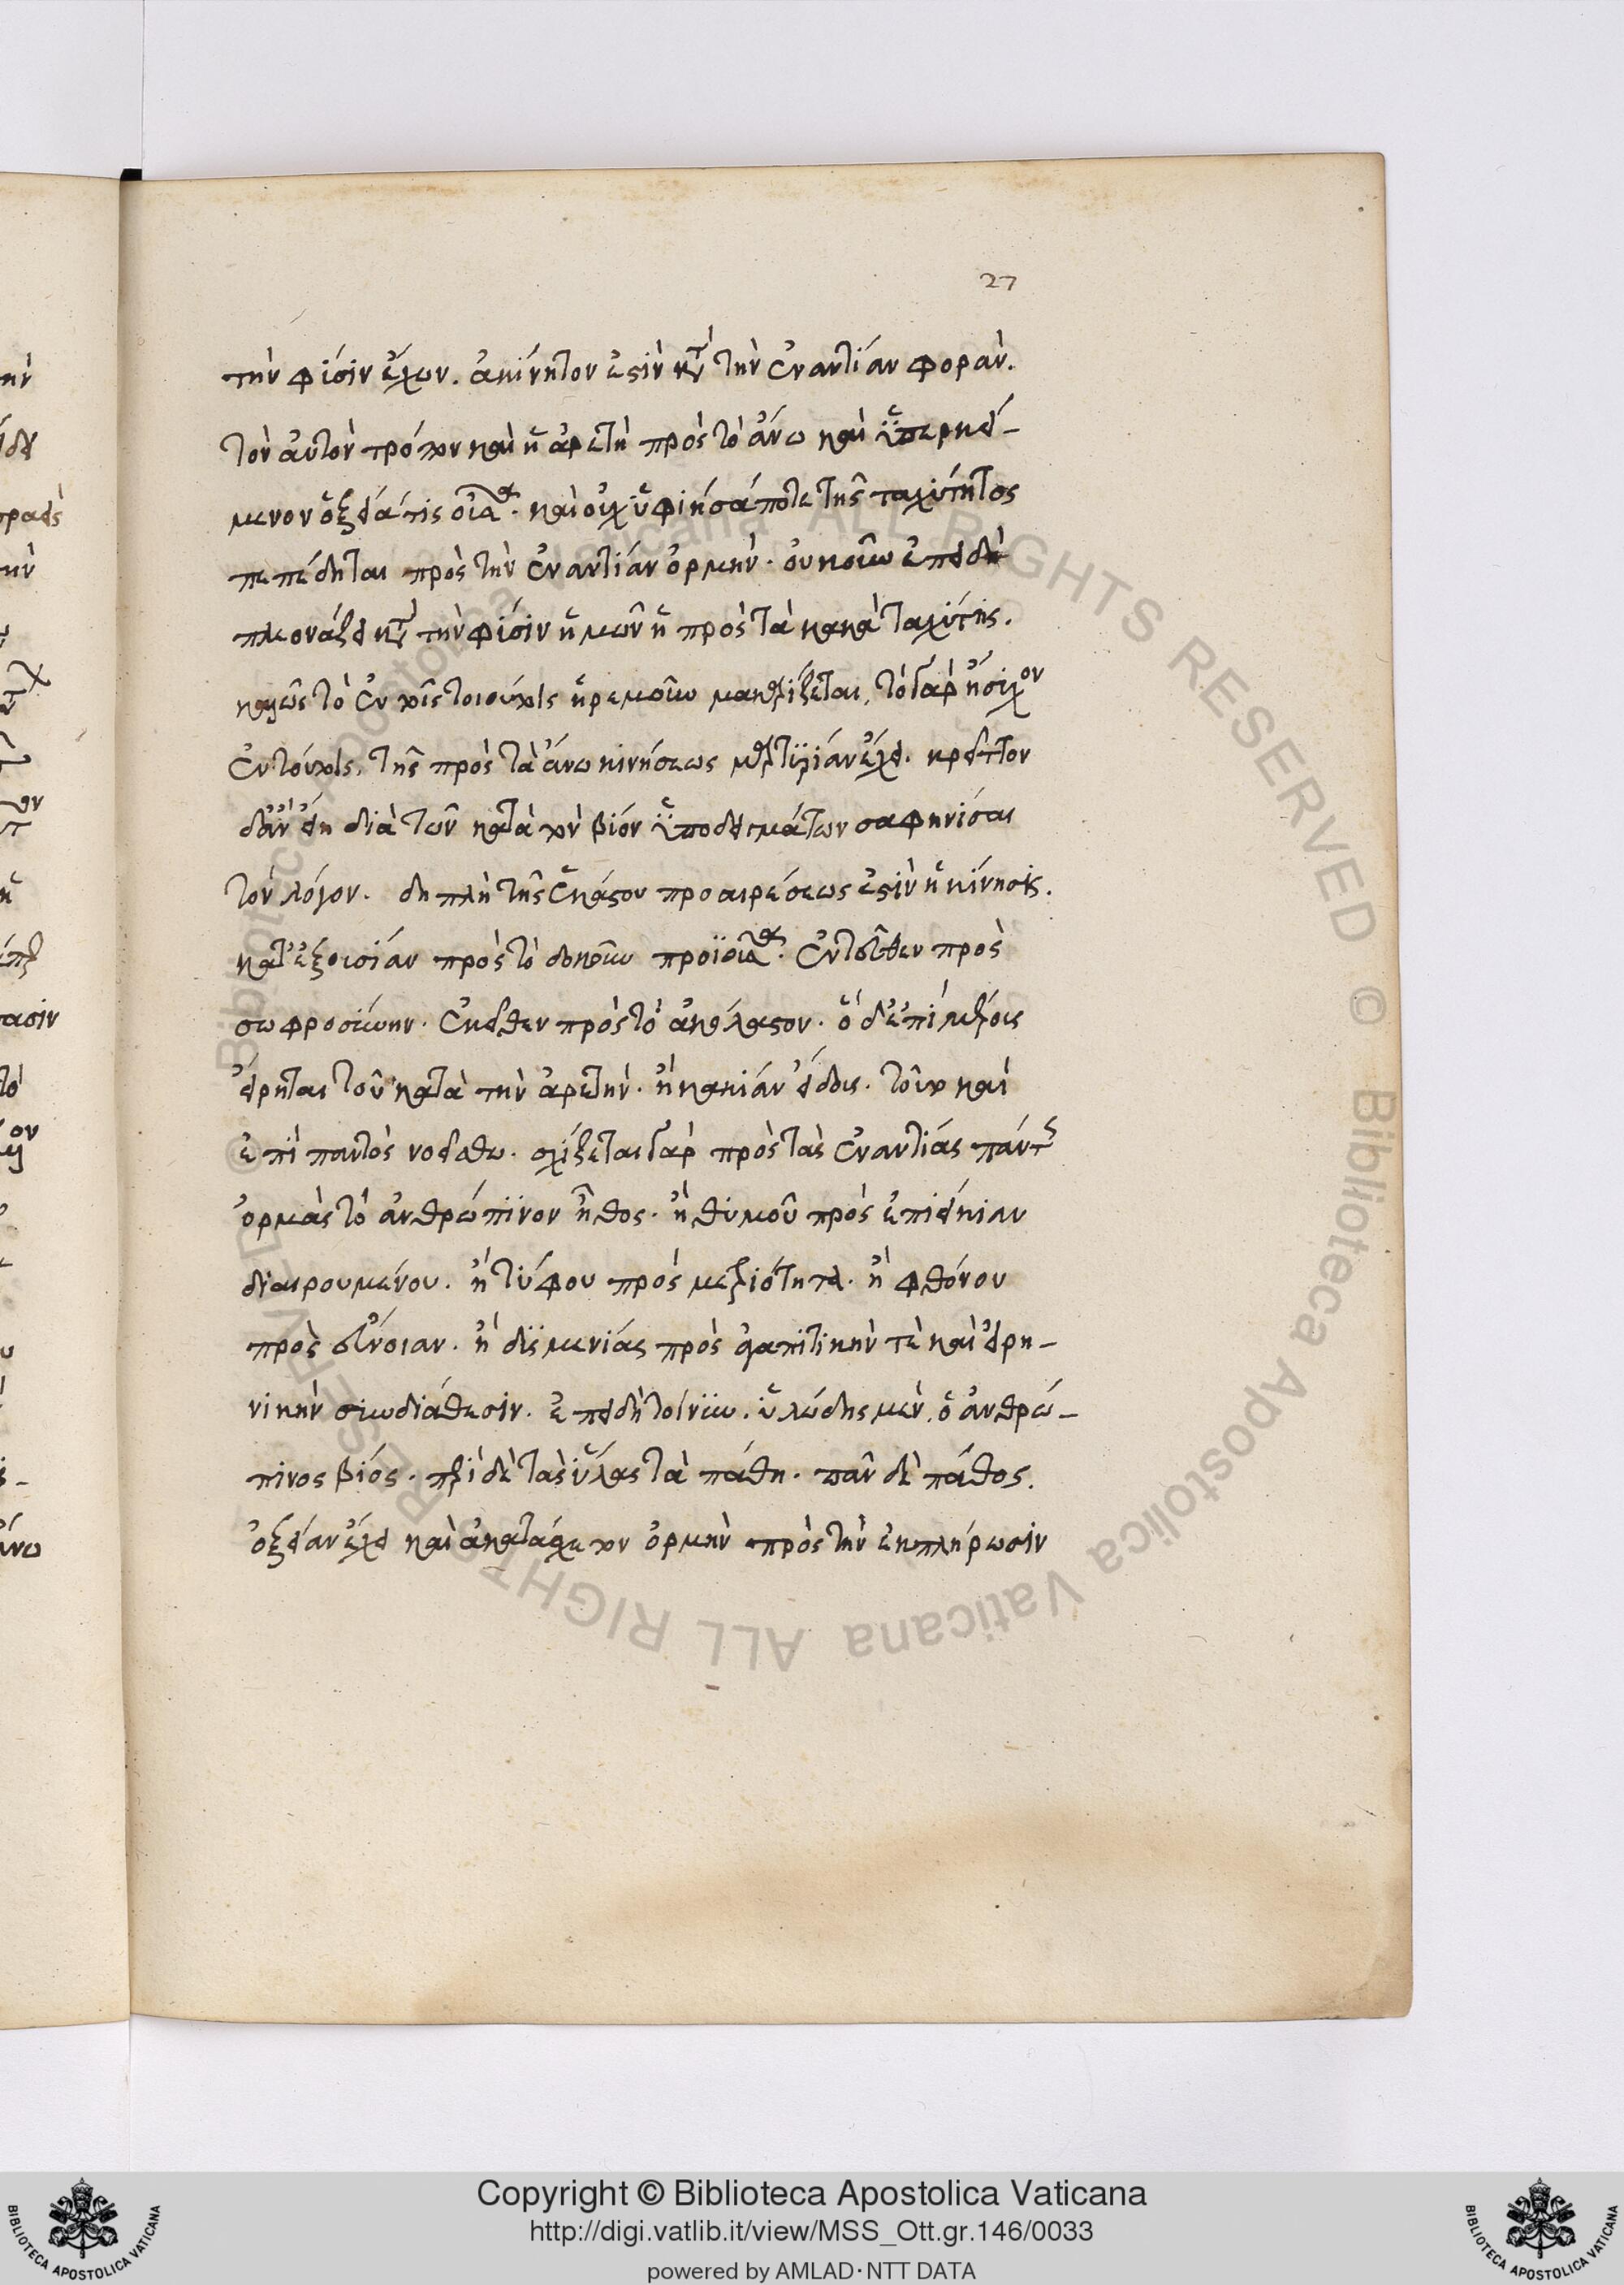 27
την φύσιν ἔχων. ἀκίνητον ἐστὶν κατὰ τὴν ἐναντίαν φοράν.
τὸν αὐτὸν τρόπον καὶ ἡ ἀρετὴ πρὸς τὸ ἄνω καὶ ὑπερκεί-
μενον ὀξεῖά τις οὖσα. καὶ οὐχ ὑφιεῖσά ποτε τῆς ταχύτητος
πεπέδηται πρὸς τὴν ἐναντίαν ὁρμήν. οὐκοῦν ἐπειδὴ
πλεονάζει κατὰ τὴν φύσιν ἡμῶν ἡ πρὸς τὰ κακὰ ταχύτης.
καλῶς τὸ ἐν τοῖς τοιούτοις ἠρεμοῦν μακαρίζεται, τὸ γὰρ ἥσυχον
ἐν τούτοις, τῆς πρὸς τὰ ἄνω κινήσεως μαρτυρίαν ἔχει. κρεῖττον
δ' ἂν εἴη διὰ τῶν κατὰ τὸν βίον ὑποδειγμάτων σαφηνίσαι
τὸν λόγον. διπλῆ τῆς ἑκάστου προαιρέσεως ἐστὶν ἡ κίνησις.
κατ' ἐξουσίαν πρὸς τὸ δοκοῦν προϊοῦσα. ἐντεῦθεν πρὸς
σωφροσύνην. ἐκεῖθεν πρὸς τὸ ἀκόλαστον. ὃ δ' ἐπὶ μέρους
εἴρηται τοῦ κατὰ τὴν ἀρετὴν. ἢ κακίαν εἴδους. τοῦτο καὶ
ἐπὶ παντὸς νοείσθω. σχίζεται γὰρ πρὸς τὰς ἐναντίας πάντως
ὁρμὰς τὸ ἀνθρώπινον ἦθος. ἢ θυμοῦ πρὸς ἐπιείκιαν
διαιρουμένου. ἢ τύφου πρὸς μετριότητα. ἢ φθόνου
πρὸς εὔνοιαν. ἢ δυσμενίας πρὸς ἀγαπητικήν τε καὶ εἰρη-
νικὴν συνδιάθεσιν. ἐπειδὴ τοίνυν. ὑλώδης μὲν, ὁ ἀνθρώ-
πινος βίος. περὶ δὲ τὰς ὕλας τὰ πάθη. πᾶν δὲ πάθος.
ὀξεῖαν ἔχει καὶ ἀκατάσχετον ὁρμὴν πρὸς τὴν ἐκπλήρωσιν
Copyright © Biblioteca Apostolica Vaticana
http://digi.vatlib.it/view/MSS_Ott.gr.146/0033
powered by AMLAD·NTT DATA